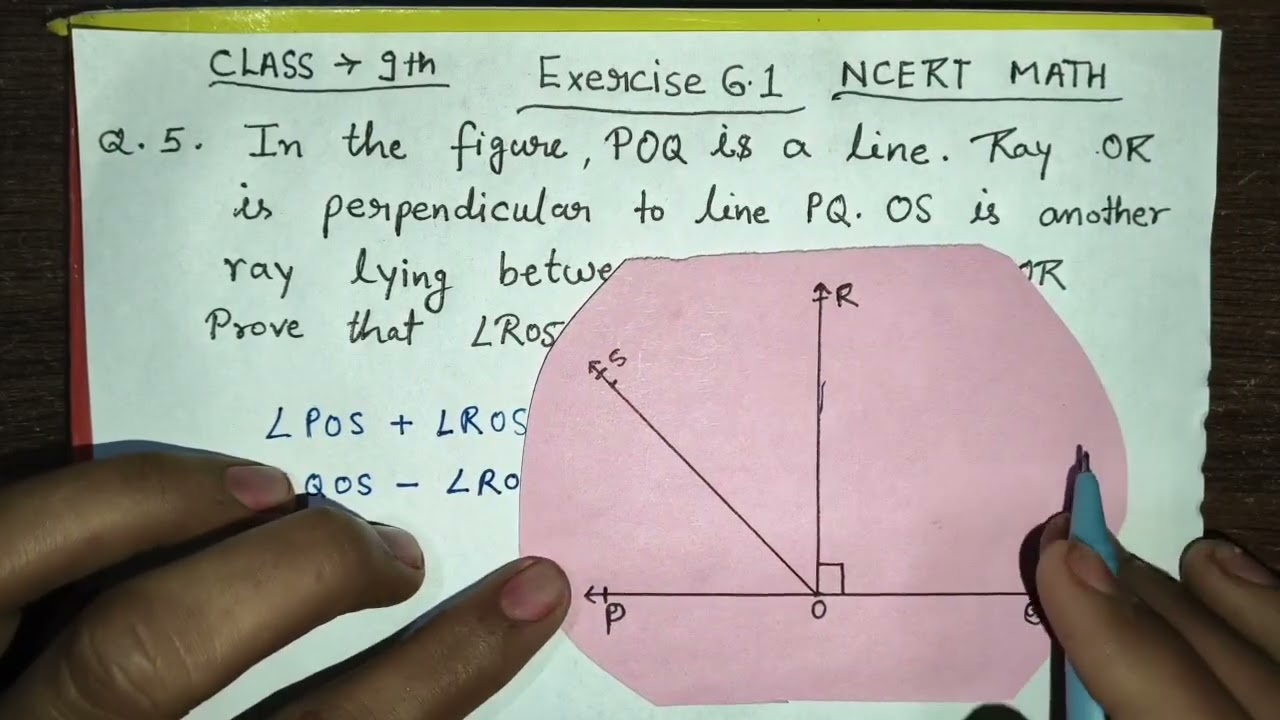 CLASS → 9th Exercise 6.1 NCERT MATH
Q.5. In the figure, POQ is a line. Ray OR
is perpendicular to line PQ. OS is another
ray lying
Prove that ∠ROS
∠POS + ∠ROS
QOS -
R
S
P O